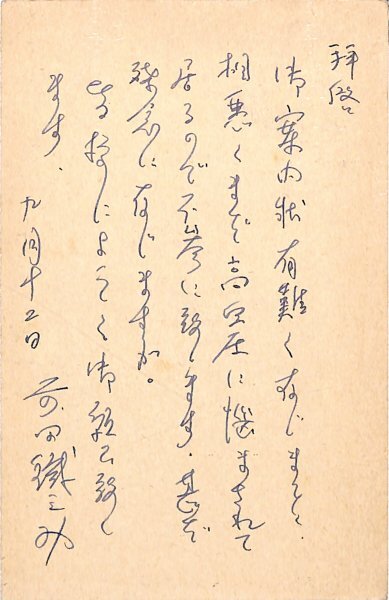 拝啓
御案内状有難く存じました、
相悪くまだ高血圧に悩まされて
居るので不参に致します。甚だ
残念に存じますが。
皆様によろしく御願致し
ます。
九月十二日 前田鐵之助